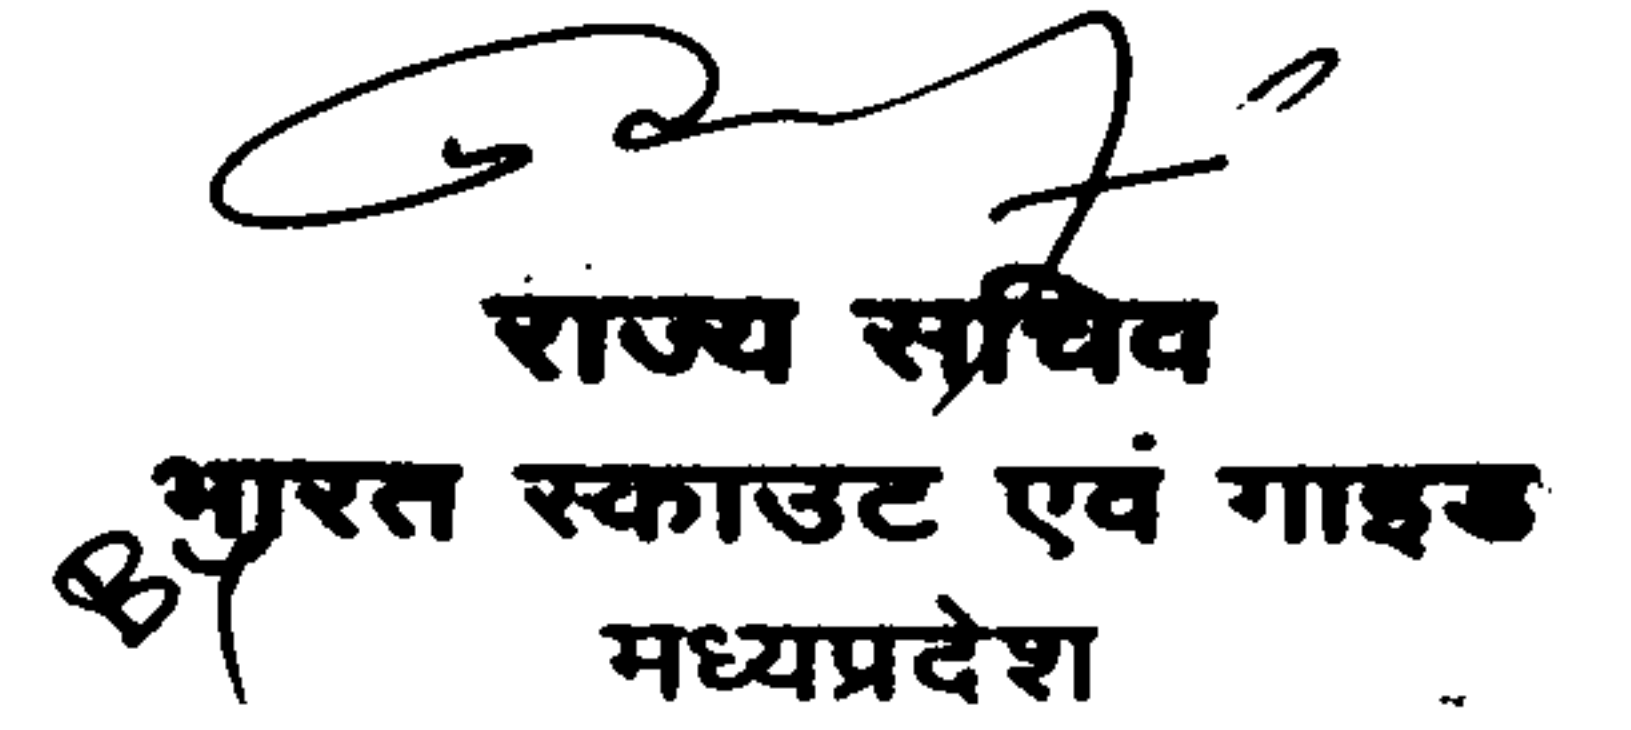 राज्य सचिव
भारत स्काउट एवं गाइड
By
मध्यप्रदेश